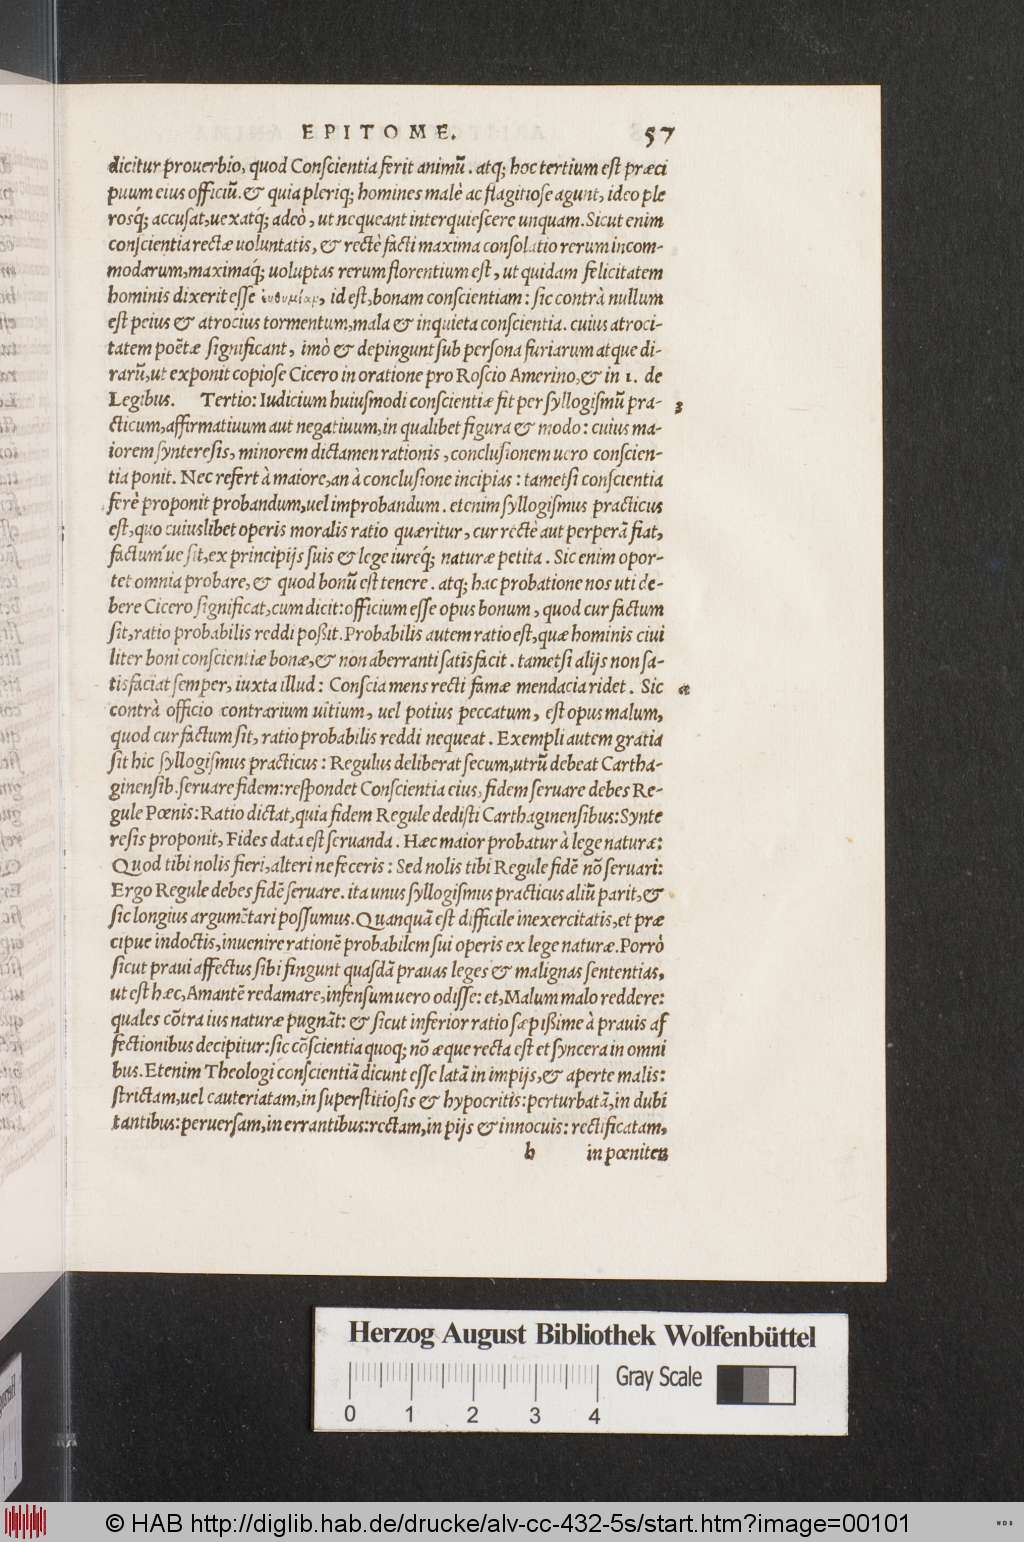 EPITOME. 57
dicitur prouerbio, quod Conſcientia ferit animũ. atq; hoc tertium eſt præci
puum eius officiũ. & quia pleriq; homines malè ac flagitioſe agunt, ideo ple
rosq́; accuſat, uexatq́; adeò, ut nequeant interquieſcere unquam. Sicut enim
conſcientia rectæ uoluntatis, & rectè facti maxima conſolatio rerum incom-
modarum, maximaq́; uoluptas rerum florentium eſt, ut quidam felicitatem
hominis dixerit eſſe ἐυθυμίαν, id eſt, bonam conſcientiam: ſic contrà nullum
eſt peius & atrocius tormentum, mala & inquieta conſcientia. cuius atroci-
tatem poëtæ ſignificant, imò & depingunt ſub perſona furiarum atque di-
rarũ, ut exponit copioſe Cicero in oratione pro Roſcio Amerino, & in 1. de
Legibus. Tertio: Iudicium huiuſmodi conſcientiæ fit per ſyllogiſmũ pra- 3
cticum, affirmatiuum aut negatiuum, in qualibet figura & modo: cuius ma-
iorem ſynteresis, minorem dictamen rationis, concluſionem uero conſcien-
tia ponit. Nec refert à maiore, an à concluſione incipias: tametſi conſcientia
ferè proponit probandum, uel improbandum. etenim ſyllogiſmus practicus
eſt, quo cuiuslibet operis moralis ratio quæritur, cur rectè aut perperã fiat,
factum´ue ſit, ex principijs ſuis & lege iureq́; naturæ petita. Sic enim opor-
tet omnia probare, & quod bonũ eſt tenere. atq; hac probatione nos uti de-
bere Cicero ſignificat, cum dicit: officium eſſe opus bonum, quod cur factum
ſit, ratio probabilis reddi poßit. Probabilis autem ratio eſt, quæ hominis ciui
liter boni conſcientiæ bonæ, & non aberranti ſatisfacit. tametſi alijs non ſa-
tisfaciat ſemper, iuxta illud: Conſcia mens recti famæ mendacia ridet. Sic
contrà officio contrarium uitium, uel potius peccatum, eſt opus malum,
quod cur factum ſit, ratio probabilis reddi nequeat. Exempli autem gratia
ſit hic ſyllogiſmus practicus: Regulus deliberat ſecum, utrũ debeat Cartha-
ginenſib. ſeruare fidem: reſpondet Conſcientia eius, fidem ſeruare debes Re-
gule Pœnis: Ratio dictat, quia fidem Regule dediſti Carthaginenſibus: Synte
reſis proponit, Fides data eſt ſeruanda. Hæc maior probatur à lege naturæ:
Quod tibi nolis fieri, alteri ne feceris: Sed nolis tibi Regule fidẽ nõ ſeruari:
Ergo Regule debes fidẽ ſeruare. ita unus ſyllogiſmus practicus aliũ parit, &
ſic longius argumẽtari poſſumus. Quanquã eſt difficile inexercitatis, et præ
cipue indoctis, inuenire rationẽ probabilem ſui operis ex lege naturæ. Porrò
ſicut praui affectus ſibi fingunt quaſdã prauas leges & malignas ſententias,
ut eſt hæc, Amantẽ redamare, infenſum uero odiſſe: et, Malum malo reddere:
quales cõtra ius naturæ pugnãt: & ſicut inferior ratio ſæpißime à prauis af
fectionibus decipitur: ſic cõſcientia quoq; nõ æque recta eſt et ſyncera in omni
bus. Etenim Theologi conſcientiã dicunt eſſe latã in impijs, & aperte malis:
ſtrictam, uel cauteriatam, in ſuperſtitioſis & hypocritis: perturbatã, in dubi
tantibus: peruerſam, in errantibus: rectam, in pijs & innocuis: rectificatam,
h in pœniten
Herzog August Bibliothek Wolfenbüttel
Gray Scale
0 1 2 3 4
© HAB http://diglib.hab.de/drucke/alv-cc-432-5s/start.htm?image=00101